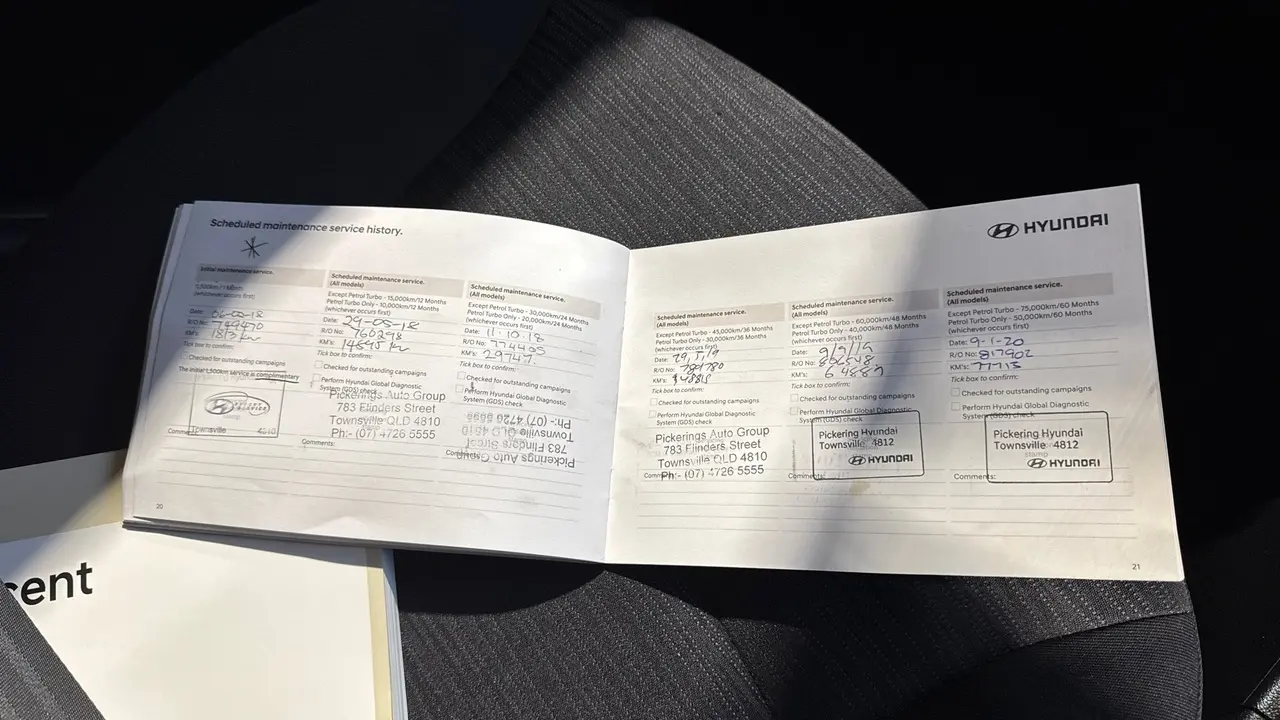 Scheduled maintenance service history.
Initial maintenance service.
1,500km/1 Month
(whichever occurs first)
Date:
R/O No:
KM's:
Tick box to confirm:
Checked for outstanding campaigns
The initial 1,500km service is complimentary
Townsville 4810
Comments:
Scheduled maintenance service.
(All models)
Except Petrol Turbo - 15,000km/12 Months
Petrol Turbo Only - 10,000km/12 Months
(whichever occurs first)
Date: 29-05-18
R/O No: 766298
KM's: 14895 km
Tick box to confirm:
Checked for outstanding campaigns
Perform Hyundai Global Diagnostic
System (GDS) check
Pickerings Auto Group
783 Flinders Street
Townsville QLD 4810
Ph:- (07) 4726 5555
Comments:
Scheduled maintenance service.
(All models)
Except Petrol Turbo - 30,000km/24 Months
Petrol Turbo Only - 20,000km/24 Months
(whichever occurs first)
Date: 11-10-18
R/O No: 774495
KM's: 29747
Tick box to confirm:
Checked for outstanding campaigns
Perform Hyundai Global Diagnostic
System (GDS) check
Pickerings Auto Group
783 Flinders Street
Townsville QLD 4810
Ph:- (07) 4726 5555
20
HYUNDAI
Scheduled maintenance service.
(All models)
Except Petrol Turbo - 45,000km/36 Months
Petrol Turbo Only - 30,000km/36 Months
(whichever occurs first)
Date: 29,5,19
R/O No:
KM's:
Tick box to confirm:
Checked for outstanding campaigns
Perform Hyundai Global Diagnostic
System (GDS) check
Pickerings Auto Group
783 Flinders Street
Townsville QLD 4810
Ph:- (07) 4726 5555
Scheduled maintenance service.
(All models)
Except Petrol Turbo - 60,000km/48 Months
Petrol Turbo Only - 40,000km/48 Months
(whichever occurs first)
Date: 9/9/19
R/O No:
KM's:
Tick box to confirm:
Checked for outstanding campaigns
Perform Hyundai Global Diagnostic
System (GDS) check
Pickering Hyundai
Townsville 4812
HYUNDAI
Comments:
Scheduled maintenance service.
(All models)
Except Petrol Turbo - 75,000km/60 Months
Petrol Turbo Only - 50,000km/60 Months
(whichever occurs first)
Date: 9-1-20
R/O No: 817902
KM's: 77715
Tick box to confirm:
Checked for outstanding campaigns
Perform Hyundai Global Diagnostic
System (GDS) check
Pickering Hyundai
Townsville 4812
stamp
HYUNDAI
Comments:
21
cent